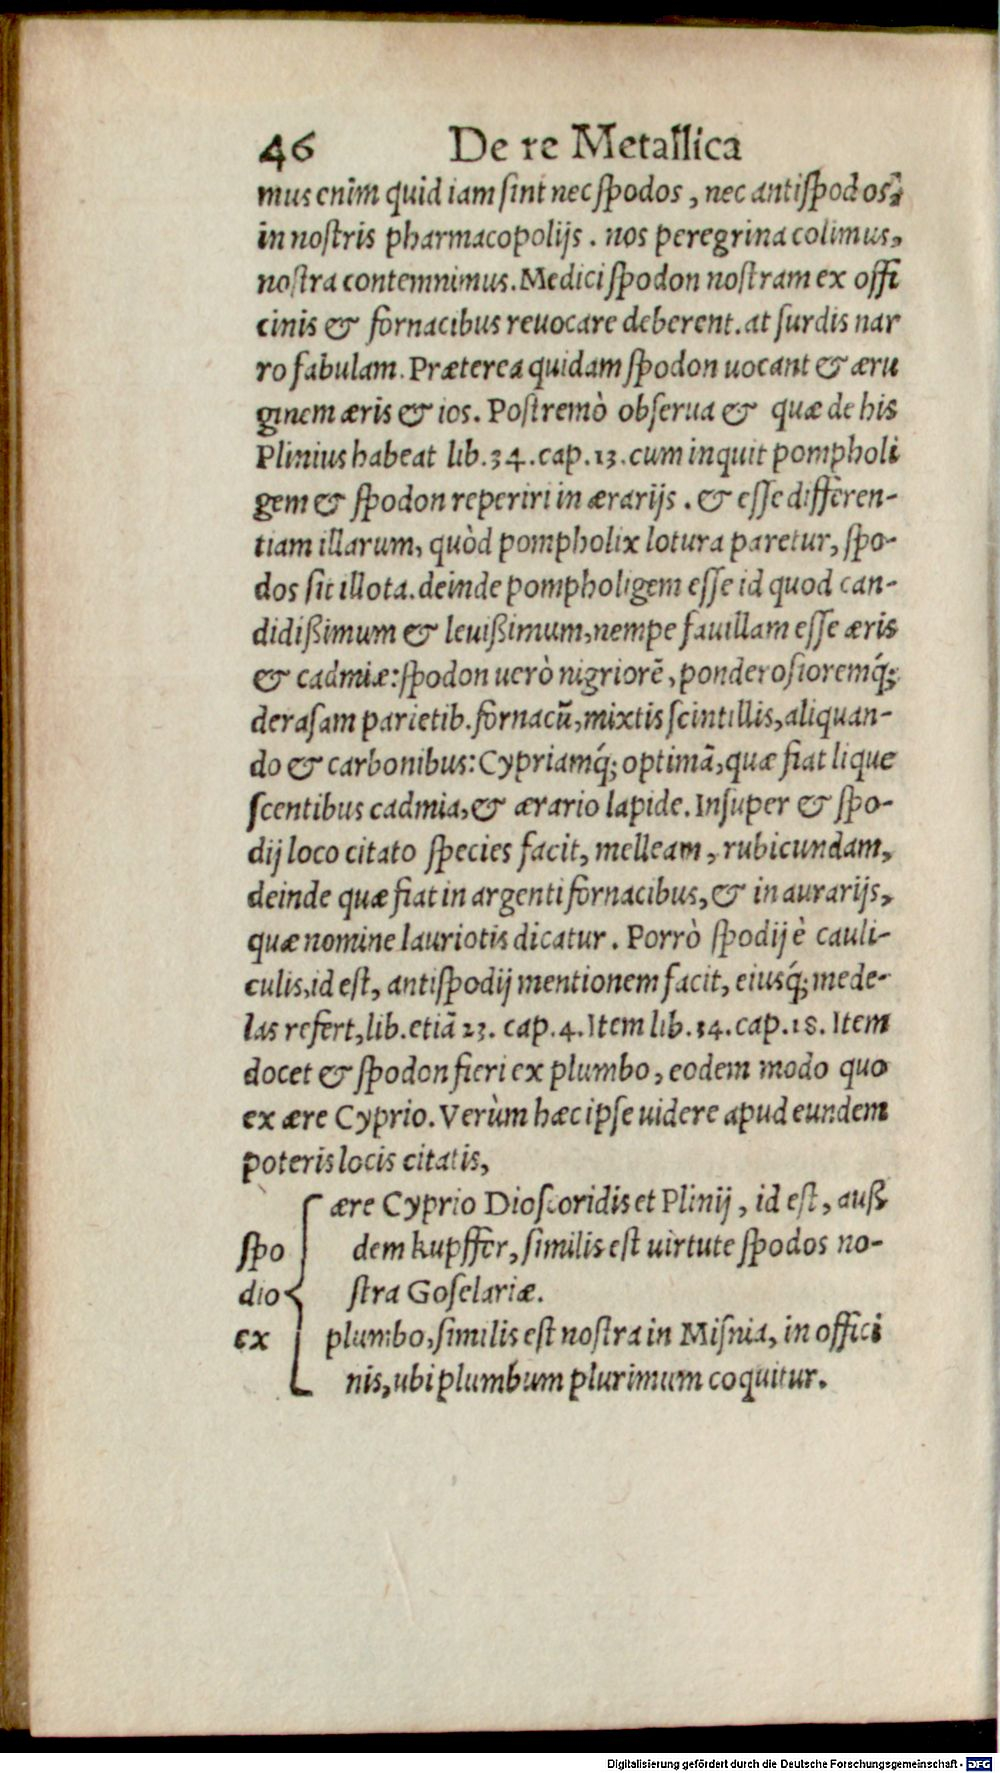 46 De re Metallica
mus enim quid iam ſint nec ſpodos, nec antiſpodos
in noſtris pharmacopolijs. nos peregrina colimus,
noſtra contemnimus. Medici ſpodon noſtram ex offi
cinis & fornacibus reuocare deberent. at ſurdis nar
ro fabulam. Præterea quidam ſpodon uocant & æru
ginem æris & ios. Poſtremò obſerua & quæ de his
Plinius habeat lib. 34. cap. 13. cum inquit pompholi
gem & ſpodon reperiri in ærarijs. & eſſe differen-
tiam illarum, quòd pompholix lotura paretur, ſpo-
dos ſit illota. deinde pompholigem eſſe id quod can-
didißimum & leuißimum, nempe fauillam eſſe æris
& cadmiæ: ſpodon uerò nigriorē, ponderosioremq́;
deraſam parietib. fornacū, mixtis ſcintillis, aliquan-
do & carbonibus: Cypriamq́; optimā, quæ fiat lique
ſcentibus cadmia, & ærario lapide. Inſuper & ſpo-
dij loco citato ſpecies facit, melleam, rubicundam,
deinde quæ fiat in argenti fornacibus, & in aurarijs,
quæ nomine lauriotis dicatur. Porrò ſpodij è cauli-
culis, id eſt, antiſpodij mentionem facit, eiusq́; mede-
las refert, lib. etiā 23. cap. 4. Item lib. 34. cap. 18. Item
docet & ſpodon fieri ex plumbo, eodem modo quo
ex ære Cyprio. Verùm hæc ipſe uidere apud eundem
poteris locis citatis,
ære Cyprio Dioſcoridis et Plinij, id eſt, auß
ſpo dem kupffer, ſimilis eſt uirtute ſpodos no-
dio ſtra Goſelariæ.
ex plumbo, ſimilis eſt noſtra in Miſnia, in offici
nis, ubi plumbum plurimum coquitur.
Digitalisierung gefördert durch die Deutsche Forschungsgemeinschaft - DFG